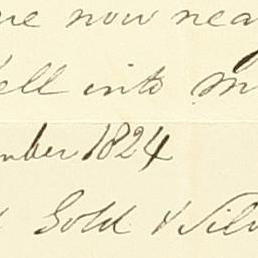 now nea
ell into m
mber 1824
Gold & Silv